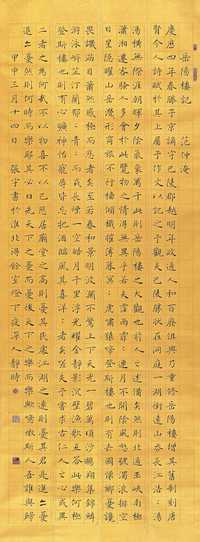 岳陽樓記 范仲淹
慶曆四年春滕子京謫守巴陵郡越明年政通人和百廢俱興乃重修岳陽樓增其舊制刻唐
賢今人詩賦於其上屬予作文以記之予觀夫巴陵勝狀在洞庭一湖銜遠山吞長江浩浩
湯湯橫無際涯朝暉夕陰氣象萬千此則岳陽樓之大觀也前人之述備矣然則北通巫峽南極
瀟湘遷客騷人多會於此覽物之情得無異乎若夫霪雨霏霏連月不開陰風怒號濁浪排空
日星隱曜山岳潛形商旅不行檣傾楫摧薄暮冥冥虎嘯猿啼登斯樓也則有去國懷鄉憂讒
畏譏滿目蕭然感極而悲者矣至若春和景明波瀾不驚上下天光一碧萬頃沙鷗翔集錦鱗
游泳岸芷汀蘭郁郁青青而或長煙一空皓月千里浮光耀金靜影沉璧漁歌互答此樂何極
登斯樓也則有心曠神怡寵辱皆忘把酒臨風其喜洋洋者矣嗟夫予嘗求古仁人之心或異
二者之為何哉不以物喜不以己悲居廟堂之高則憂其民處江湖之遠則憂其君是進亦憂
退亦憂然則何時而樂耶其必曰先天下之憂而憂後天下之樂而樂歟噫微斯人吾誰與歸
甲申三月十四日 張宇書於淮北得餘室燈下夜深人靜時